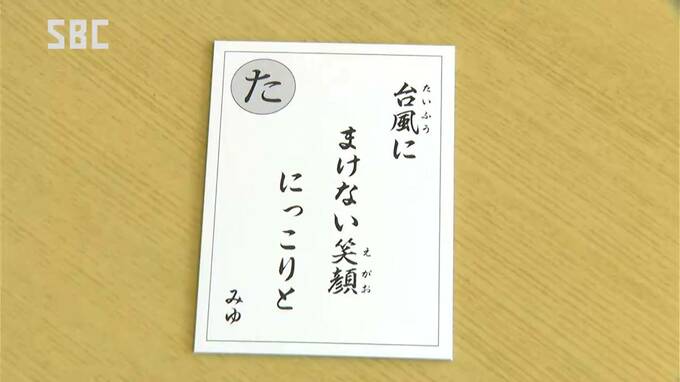 SBC
た
台風に
たいふう
まけない笑顔
えがお
にっこりと
みゆ